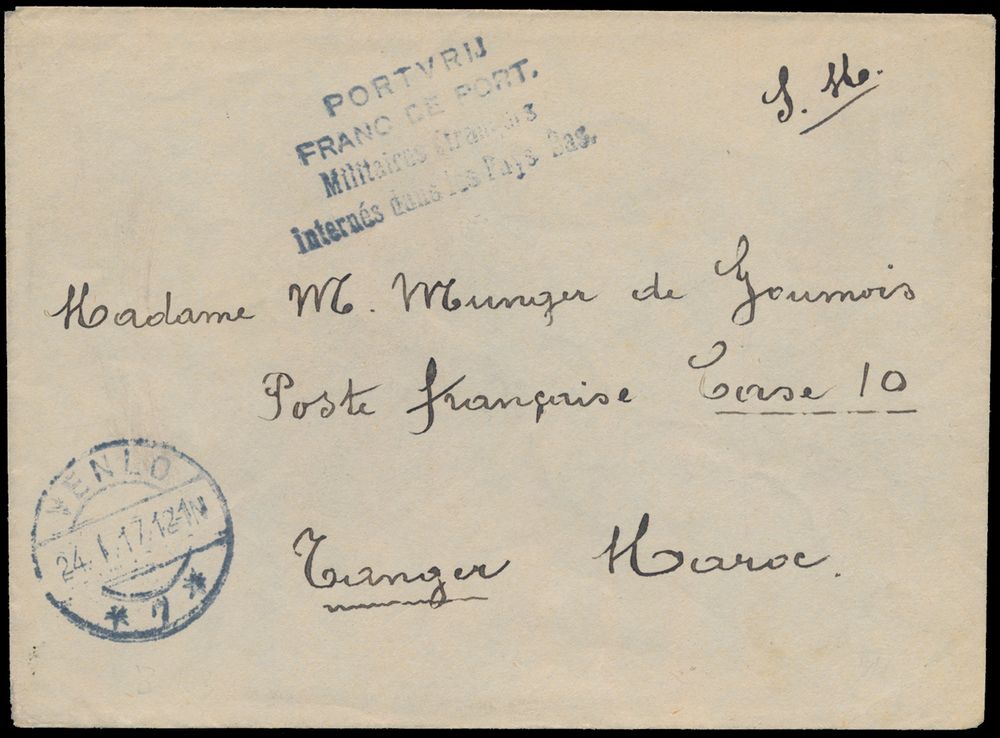 PORTVRIJ
FRANC DE PORT.
Militaires étrangers
internés dans les Pays-Bas.
S. M.
Madame M. Munger de Goumois
Poste française Corse 10
Tanger Maroc.
VENLO
24.1.17.12-1N
* 7 *